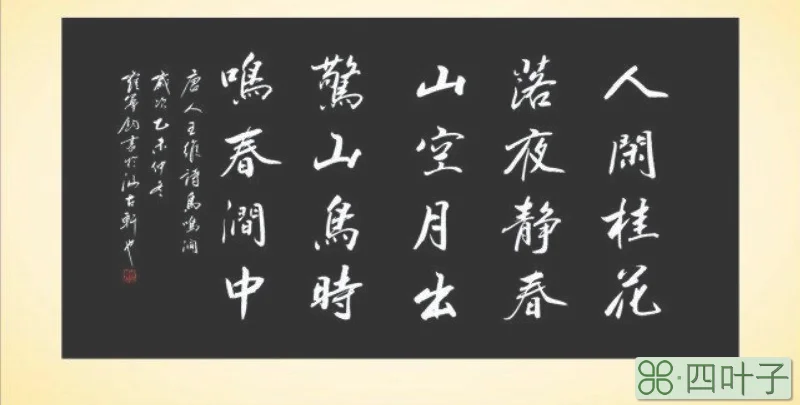 人閑桂花
落夜静春
山空月出
驚山鳥時
鳴春澗中
唐人王维詩鳥鳴澗
歲次乙未仲冬
書於汲古軒也
四叶子